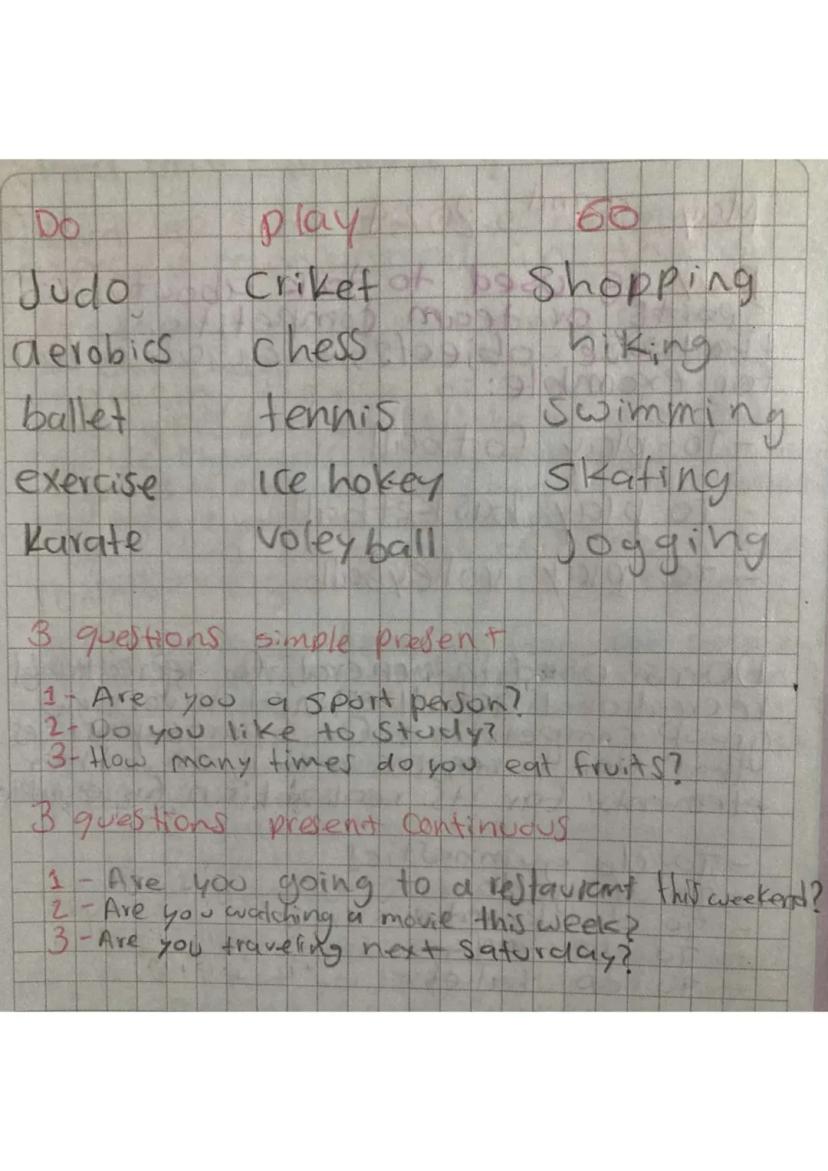 Do play Go
Judo Criket Shopping
aerobics chess hiking
ballet tennis swimming
exercise Ice hokey skating
karate voleyball Jogging
3 questions simple present
1- Are you a sport person?
2- Do you like to study?
3- How many times do you eat fruits?
3 questions present continuous
1 - Are you going to a restaurant this weekend?
2 - Are you watching a movie this week?
3 - Are you traveling next saturday?